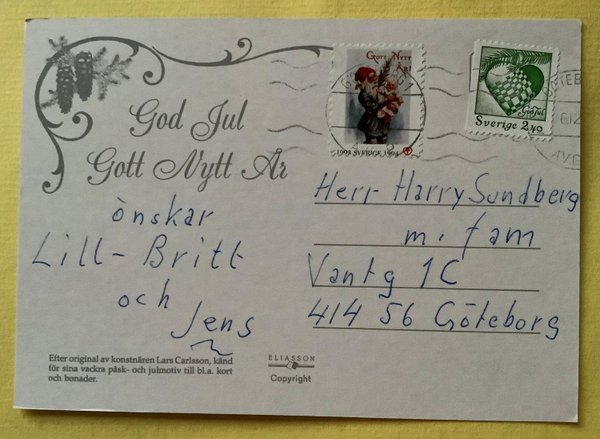 God Jul
Gott Nytt År
önskar
Lill-Britt
och
Jens
Efter original av konstnären Lars Carlsson, känd
för sina vackra påsk- och julmotiv till bl.a. kort
och bonader.
ELIASSON
Copyright
Gott Nytt
År!
1993 SVERIGE 1994
God Jul
Sverige 2,40
Herr Harry Sundberg
m. fam
Vantg 1C
414 56 Göteborg